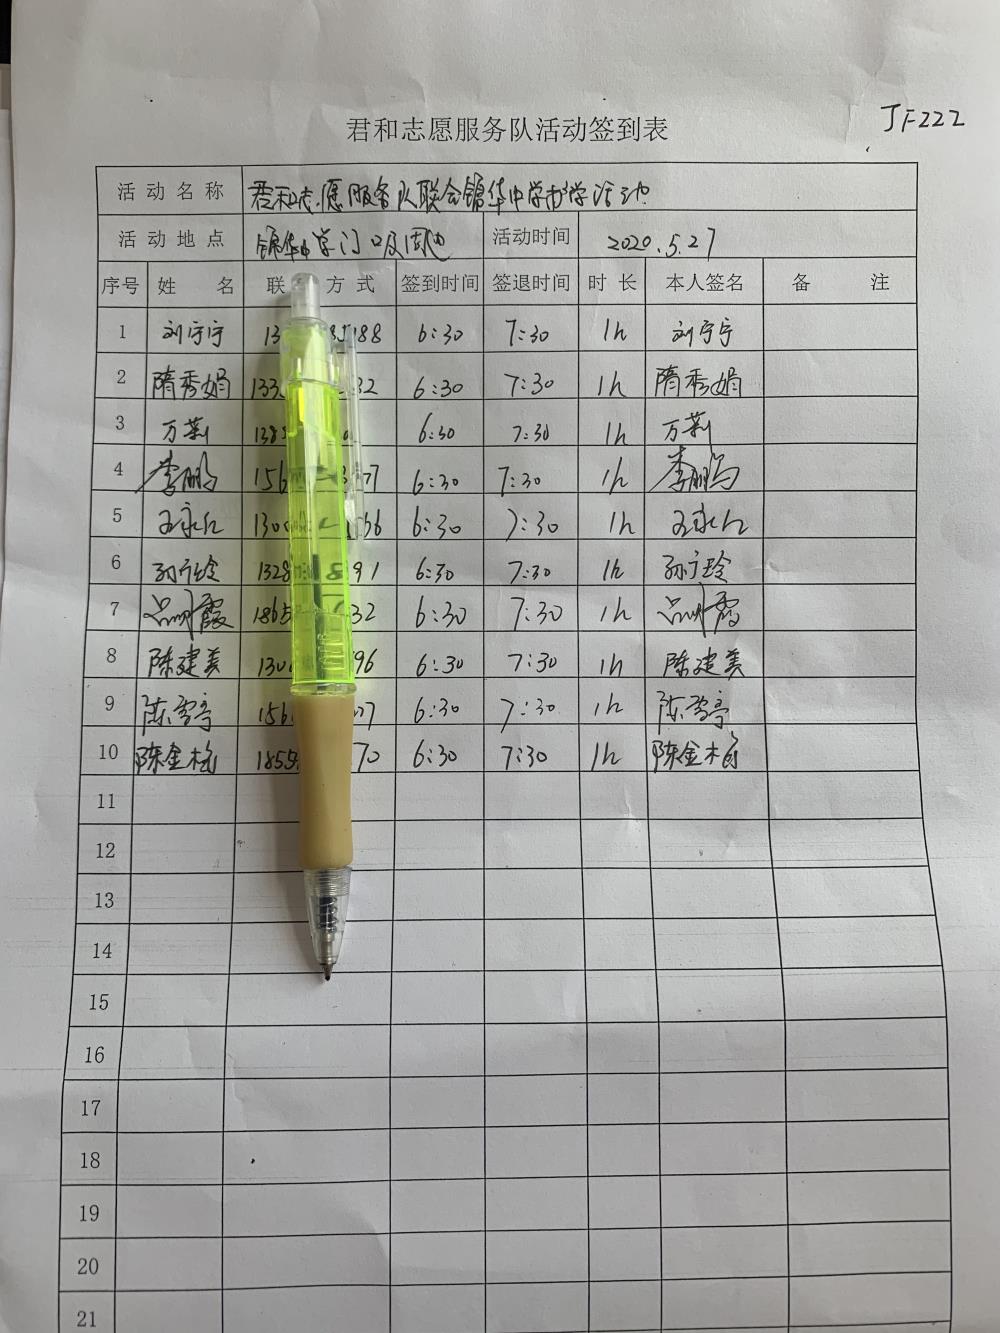 JF222
君和志愿服务队活动签到表
活动名称 君和志愿服务队联合锦华中学护学活动
活动地点 锦华中学门口及周边 活动时间 2020.5.27
序号 姓 名 联 方式 签到时间 签退时间 时长 本人签名 备 注
1 刘宁宁 13 188 6:30 7:30 1h 刘宁宁
2 隋秀娟 133 32 6:30 7:30 1h 隋秀娟
3 万莉 138 6:30 7:30 1h 万莉
4 李鹏 156 77 6:30 7:30 1h 李鹏
5 王永仁 130 66 6:30 7:30 1h 王永仁
6 孙广玲 1328 91 6:30 7:30 1h 孙广玲
7 霞 1865 32 6:30 7:30 1h 霞
8 陈建美 130 96 6:30 7:30 1h 陈建美
9 陈雪亭 156 77 6:30 7:30 1h 陈雪亭
10 陈金梅 1855 70 6:30 7:30 1h 陈金梅
11
12
13
14
15
16
17
18
19
20
21